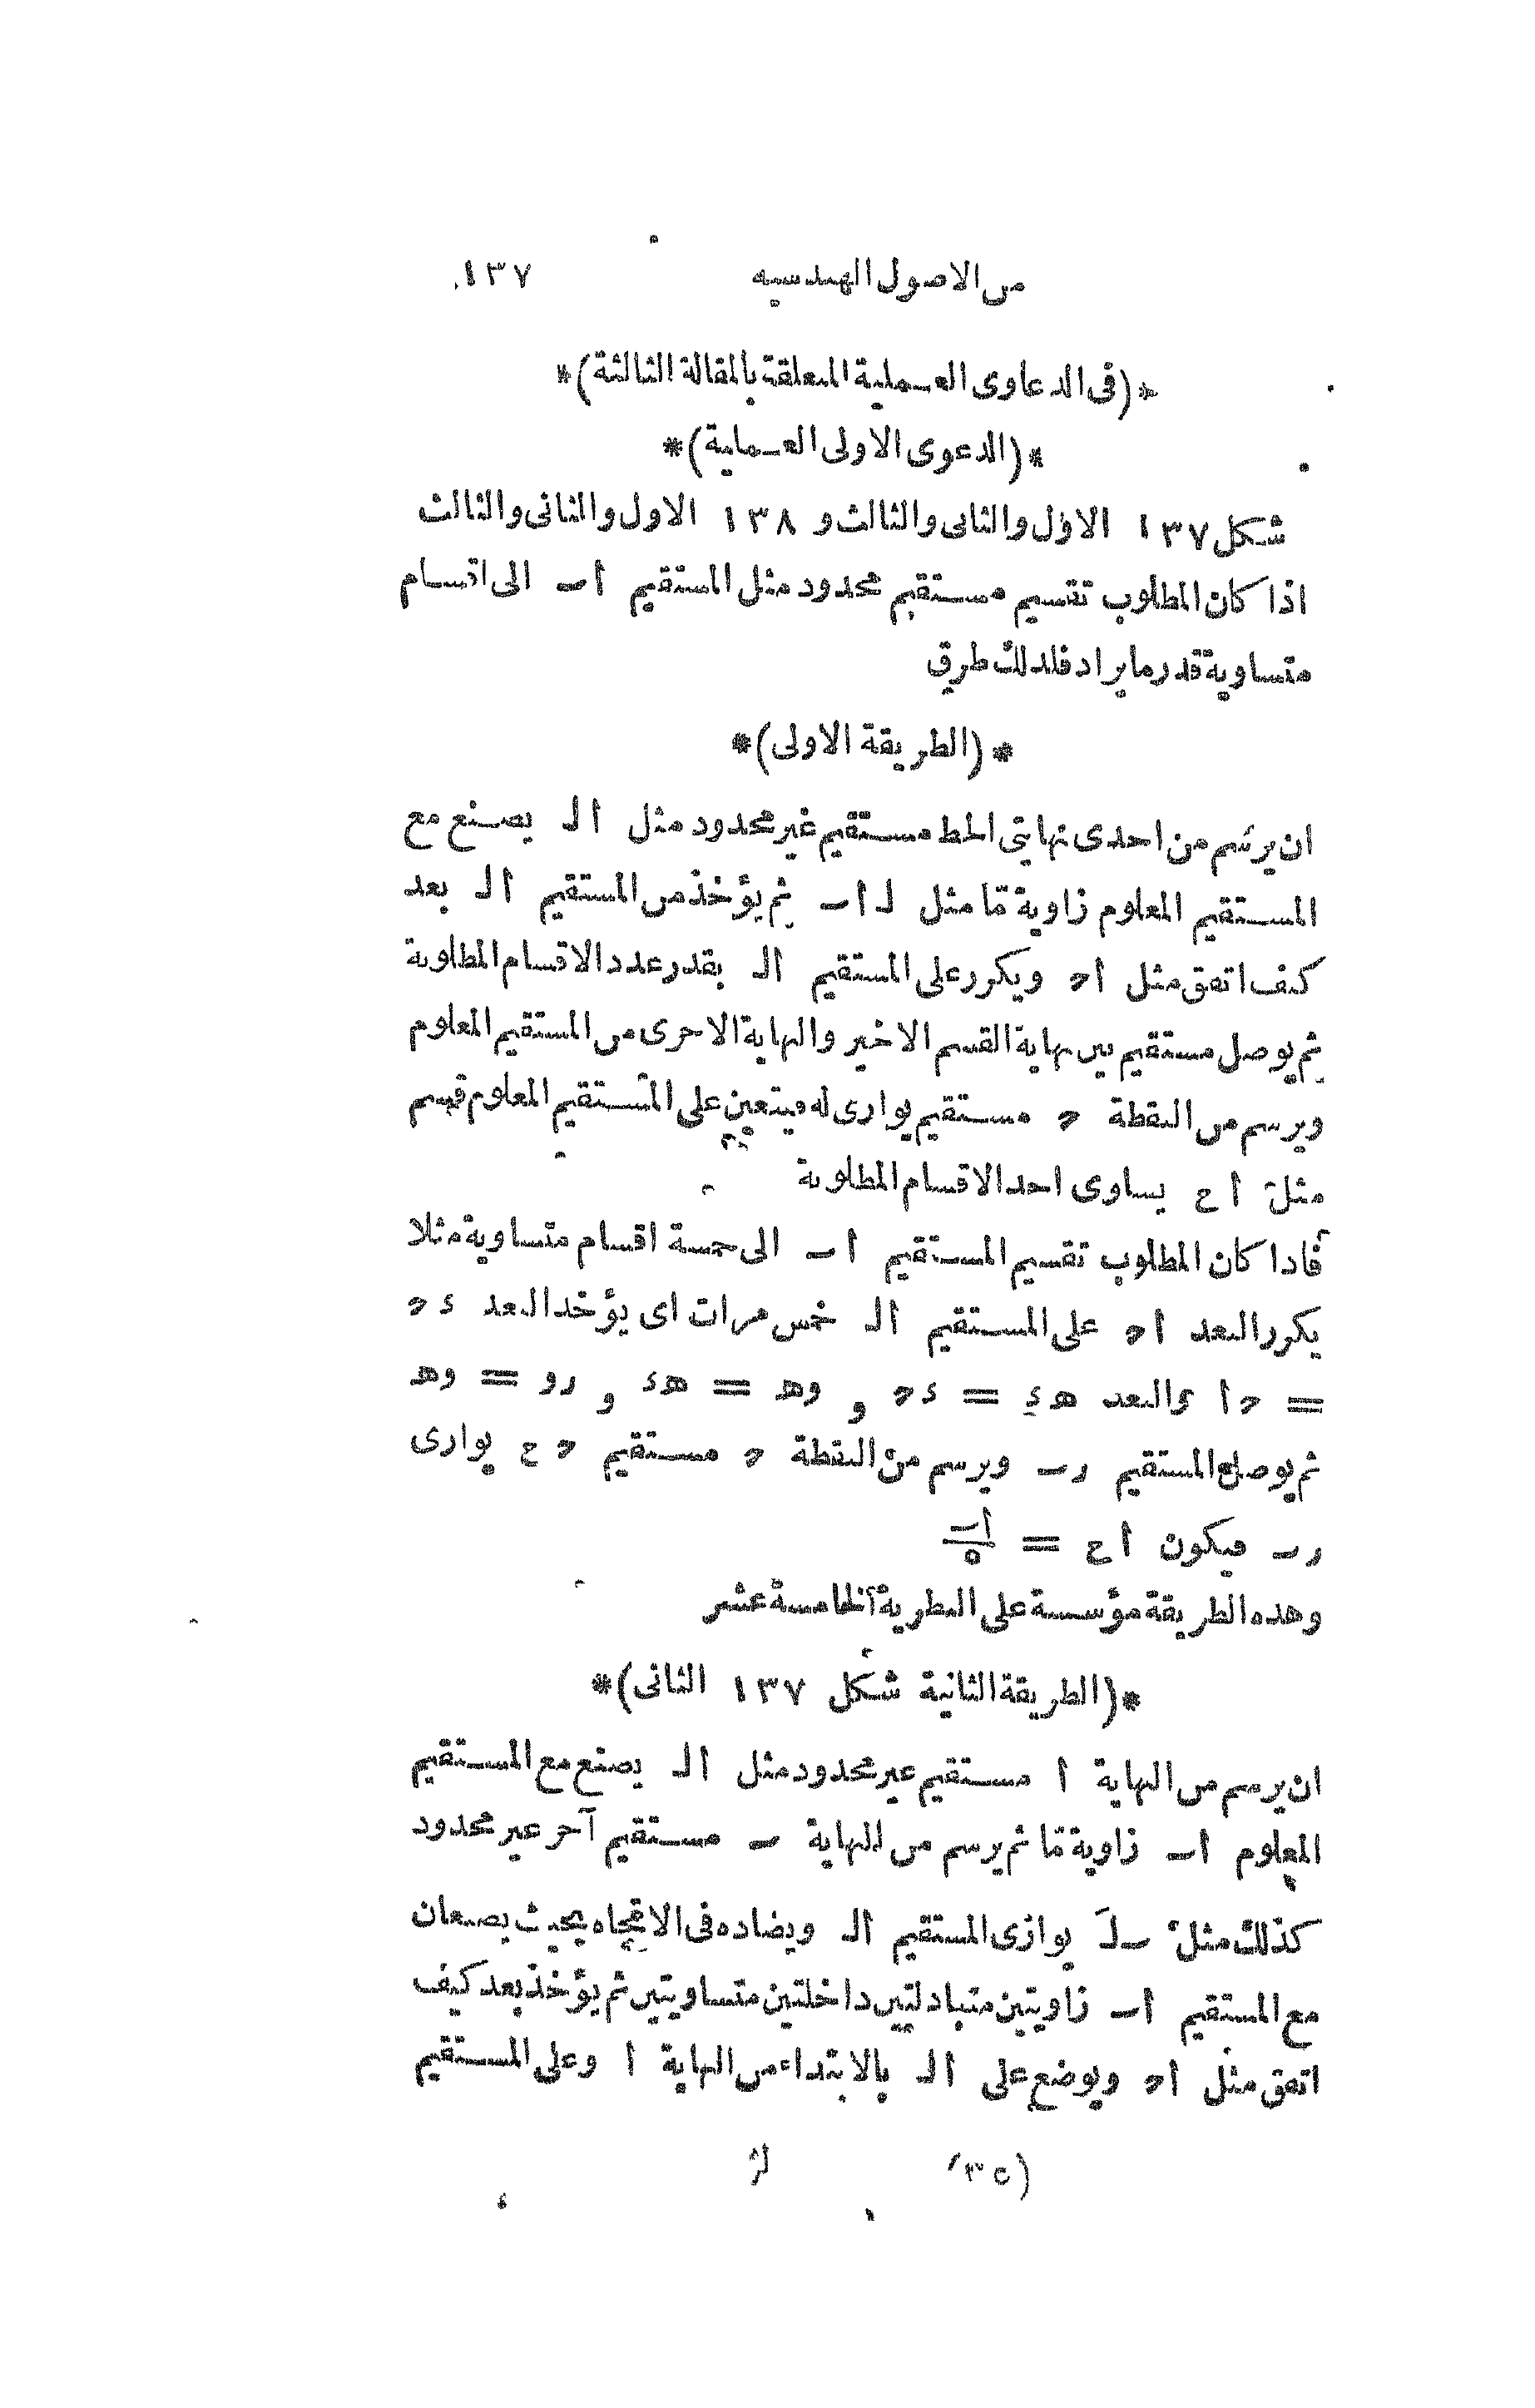 من الاصول الهندسيه ١٣٧
*(فى الدعاوى العملية المتعلقة بالمقالة الثالثة)*
*(الدعوى الاولى العملية)*
شكل ١٣٧ الاوّل والثانى والثالث و ١٣٨ الاول والثانى والثالث
اذا كان المطلوب تقسيم مستقيم محدود مثل المستقيم اب الى اقسام
متساوية قدر ما يراد فلذلك طرق
*(الطريقة الاولى)*
ان يرسم من احدى نهايتى الخط مستقيم غير محدود مثل ال يصنع مع
المستقيم المعلوم زاوية مّا مثل ل اب ثم يؤخذ من المستقيم ال بعد
كيف اتفق مثل اح ويكرر على المستقيم ال بقدر عدد الاقسام المطلوبة
ثم يوصل مستقيم بين نهاية القسم الاخير والنهاية الاخرى من المستقيم المعلوم
ويرسم من النقطة ح مستقيم يوازى له فيتعين على المستقيم المعلوم قسم
مثل اع يساوى احد الاقسام المطلوبة
فاذا كان المطلوب تقسيم المستقيم اب الى خمسة اقسام متساوية مثلا
يكرر البعد اح على المستقيم ال خمس مرات اى يؤخذ البعد ء ح
= ح ا والبعد هء = ء ح و وه = هء و رو = وه
ثم يوصل المستقيم رب ويرسم من النقطة ح مستقيم ح ع يوازى
رب فيكون اع = اب/٥
وهذه الطريقة مؤسسة على النظرية الخامسة عشر
*(الطريقة الثانية شكل ١٣٧ الثانى)*
ان يرسم من النهاية ا مستقيم غير محدود مثل ال يصنع مع المستقيم
المعلوم اب زاوية مّا ثم يرسم من النهاية ب مستقيم آخر غير محدود
كذلك مثل بلَ يوازى المستقيم ال ويضاده فى الاتجاه بحيث يصنعان
مع المستقيم اب زاويتين متبادلتين داخلتين متساويتين ثم يؤخذ بعد كيف
اتفق مثل اح ويوضع على ال بالابتداء من النهاية ا وعلى المستقيم